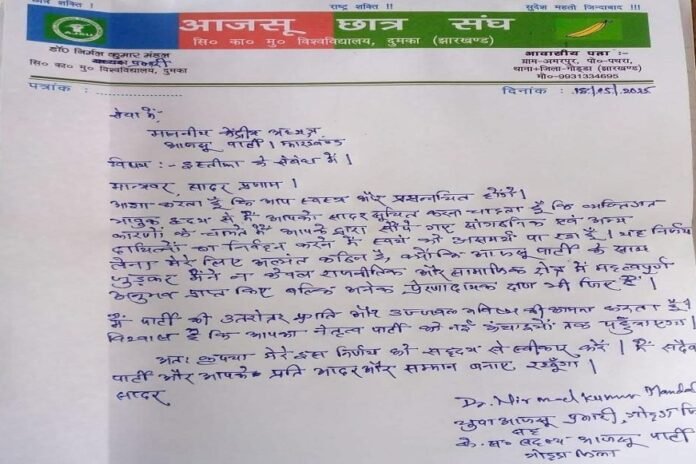 छात्र शक्ति ! राष्ट्र शक्ति !! सुदेश महतो जिन्दाबाद !!!
आजसू छात्र संघ
सि० का० मु० विश्वविद्यालय, दुमका (झारखण्ड)
डॉ० निर्मल कुमार मंडल
प्रभारी
सि० का० मु० विश्वविद्यालय, दुमका
आवासीय पता :-
ग्राम-अमरपुर, पो०-पथरा,
थाना+जिला-गोड्डा (झारखण्ड)
मो०-9931334695
पत्रांक : दिनांक : 18/05/2025
सेवा में,
माननीय केंद्रीय अध्यक्ष
आजसू पार्टी। झारखण्ड
विषय :- इस्तीफा के संबंध में।
मान्यवर, सादर प्रणाम।
आशा करता हूँ कि आप स्वस्थ और प्रसन्नचित होंगे।
भावुक हृदय से मैं आपको सादर सूचित करना चाहता हूँ कि व्यक्तिगत
कारणों के चलते मैं आपके द्वारा सौंपे गए सांगठनिक एवं अन्य
दायित्वों का निर्वहन करने में स्वयं को असमर्थ पा रहा हूँ। यह निर्णय
लेना मेरे लिए अत्यंत कठिन है, क्योंकि आजसू पार्टी के साथ
जुड़कर मैंने न केवल राजनीतिक और सामाजिक क्षेत्र में महत्वपूर्ण
अनुभव प्राप्त किए बल्कि अनेक प्रेरणादायक क्षण भी जिए हैं।
मैं पार्टी की उत्तरोत्तर प्रगति और उज्जवल भविष्य की कामना करता हूँ।
विश्वास है कि आपका नेतृत्व पार्टी को नई ऊंचाइयों तक पहुँचाएगा।
अतः कृपया मेरे इस निर्णय को सहृदय से स्वीकार करें। मैं सदैव
पार्टी और आपके प्रति आदर और सम्मान बनाए रखूँगा।
सादर
Dr. Nirmal Kumar Mandal
युवा आजसू प्रभारी, गोड्डा
के० स० सदस्य आजसू पार्टी
गोड्डा जिला